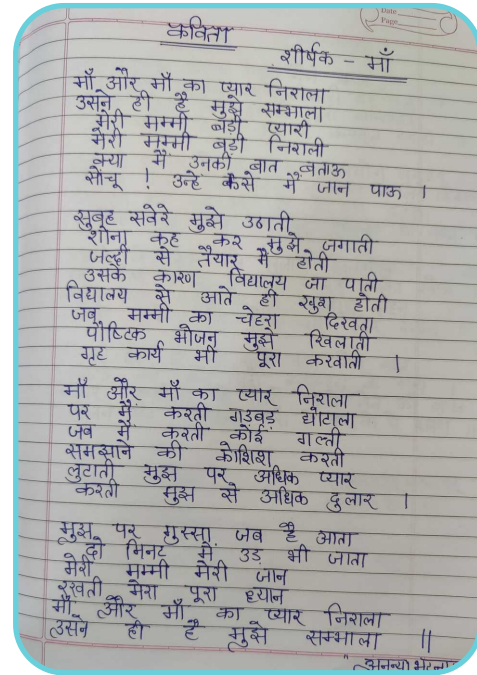 Date
Page
कविता
शीर्षक - माँ
माँ और माँ का प्यार निराला
उसने ही है मुझे सम्भाला
मेरी मम्मी बड़ी प्यारी
मेरी मम्मी बड़ी निराली
क्या मैं उनकी बात बताऊ
सोचू ! उन्हे कैसे मैं जान पाऊ ।
सुबह सवेरे मुझे उठाती
शोना कह कर मुझे जगाती
जल्दी से तैयार मैं होती
उसके कारण विद्यालय जा पाती
विद्यालय से आते ही खुश होती
जब मम्मी का चेहरा दिखता
पौष्टिक भोजन मुझे खिलाती
गृह कार्य भी पूरा करवाती ।
माँ और माँ का प्यार निराला
पर मैं करती गड़बड़ घोटाला
जब मैं करती कोई गल्ती
समझाने की कोशिश करती
लुटाती मुझ पर अधिक प्यार
करती मुझ से अधिक दुलार ।
मुझ पर गुस्सा जब है आता
दो मिनट में उड़ भी जाता
मेरी मम्मी मेरी जान
रखती मेरा पूरा ध्यान
माँ और माँ का प्यार निराला
उसने ही है मुझे सम्भाला ||
अनन्या